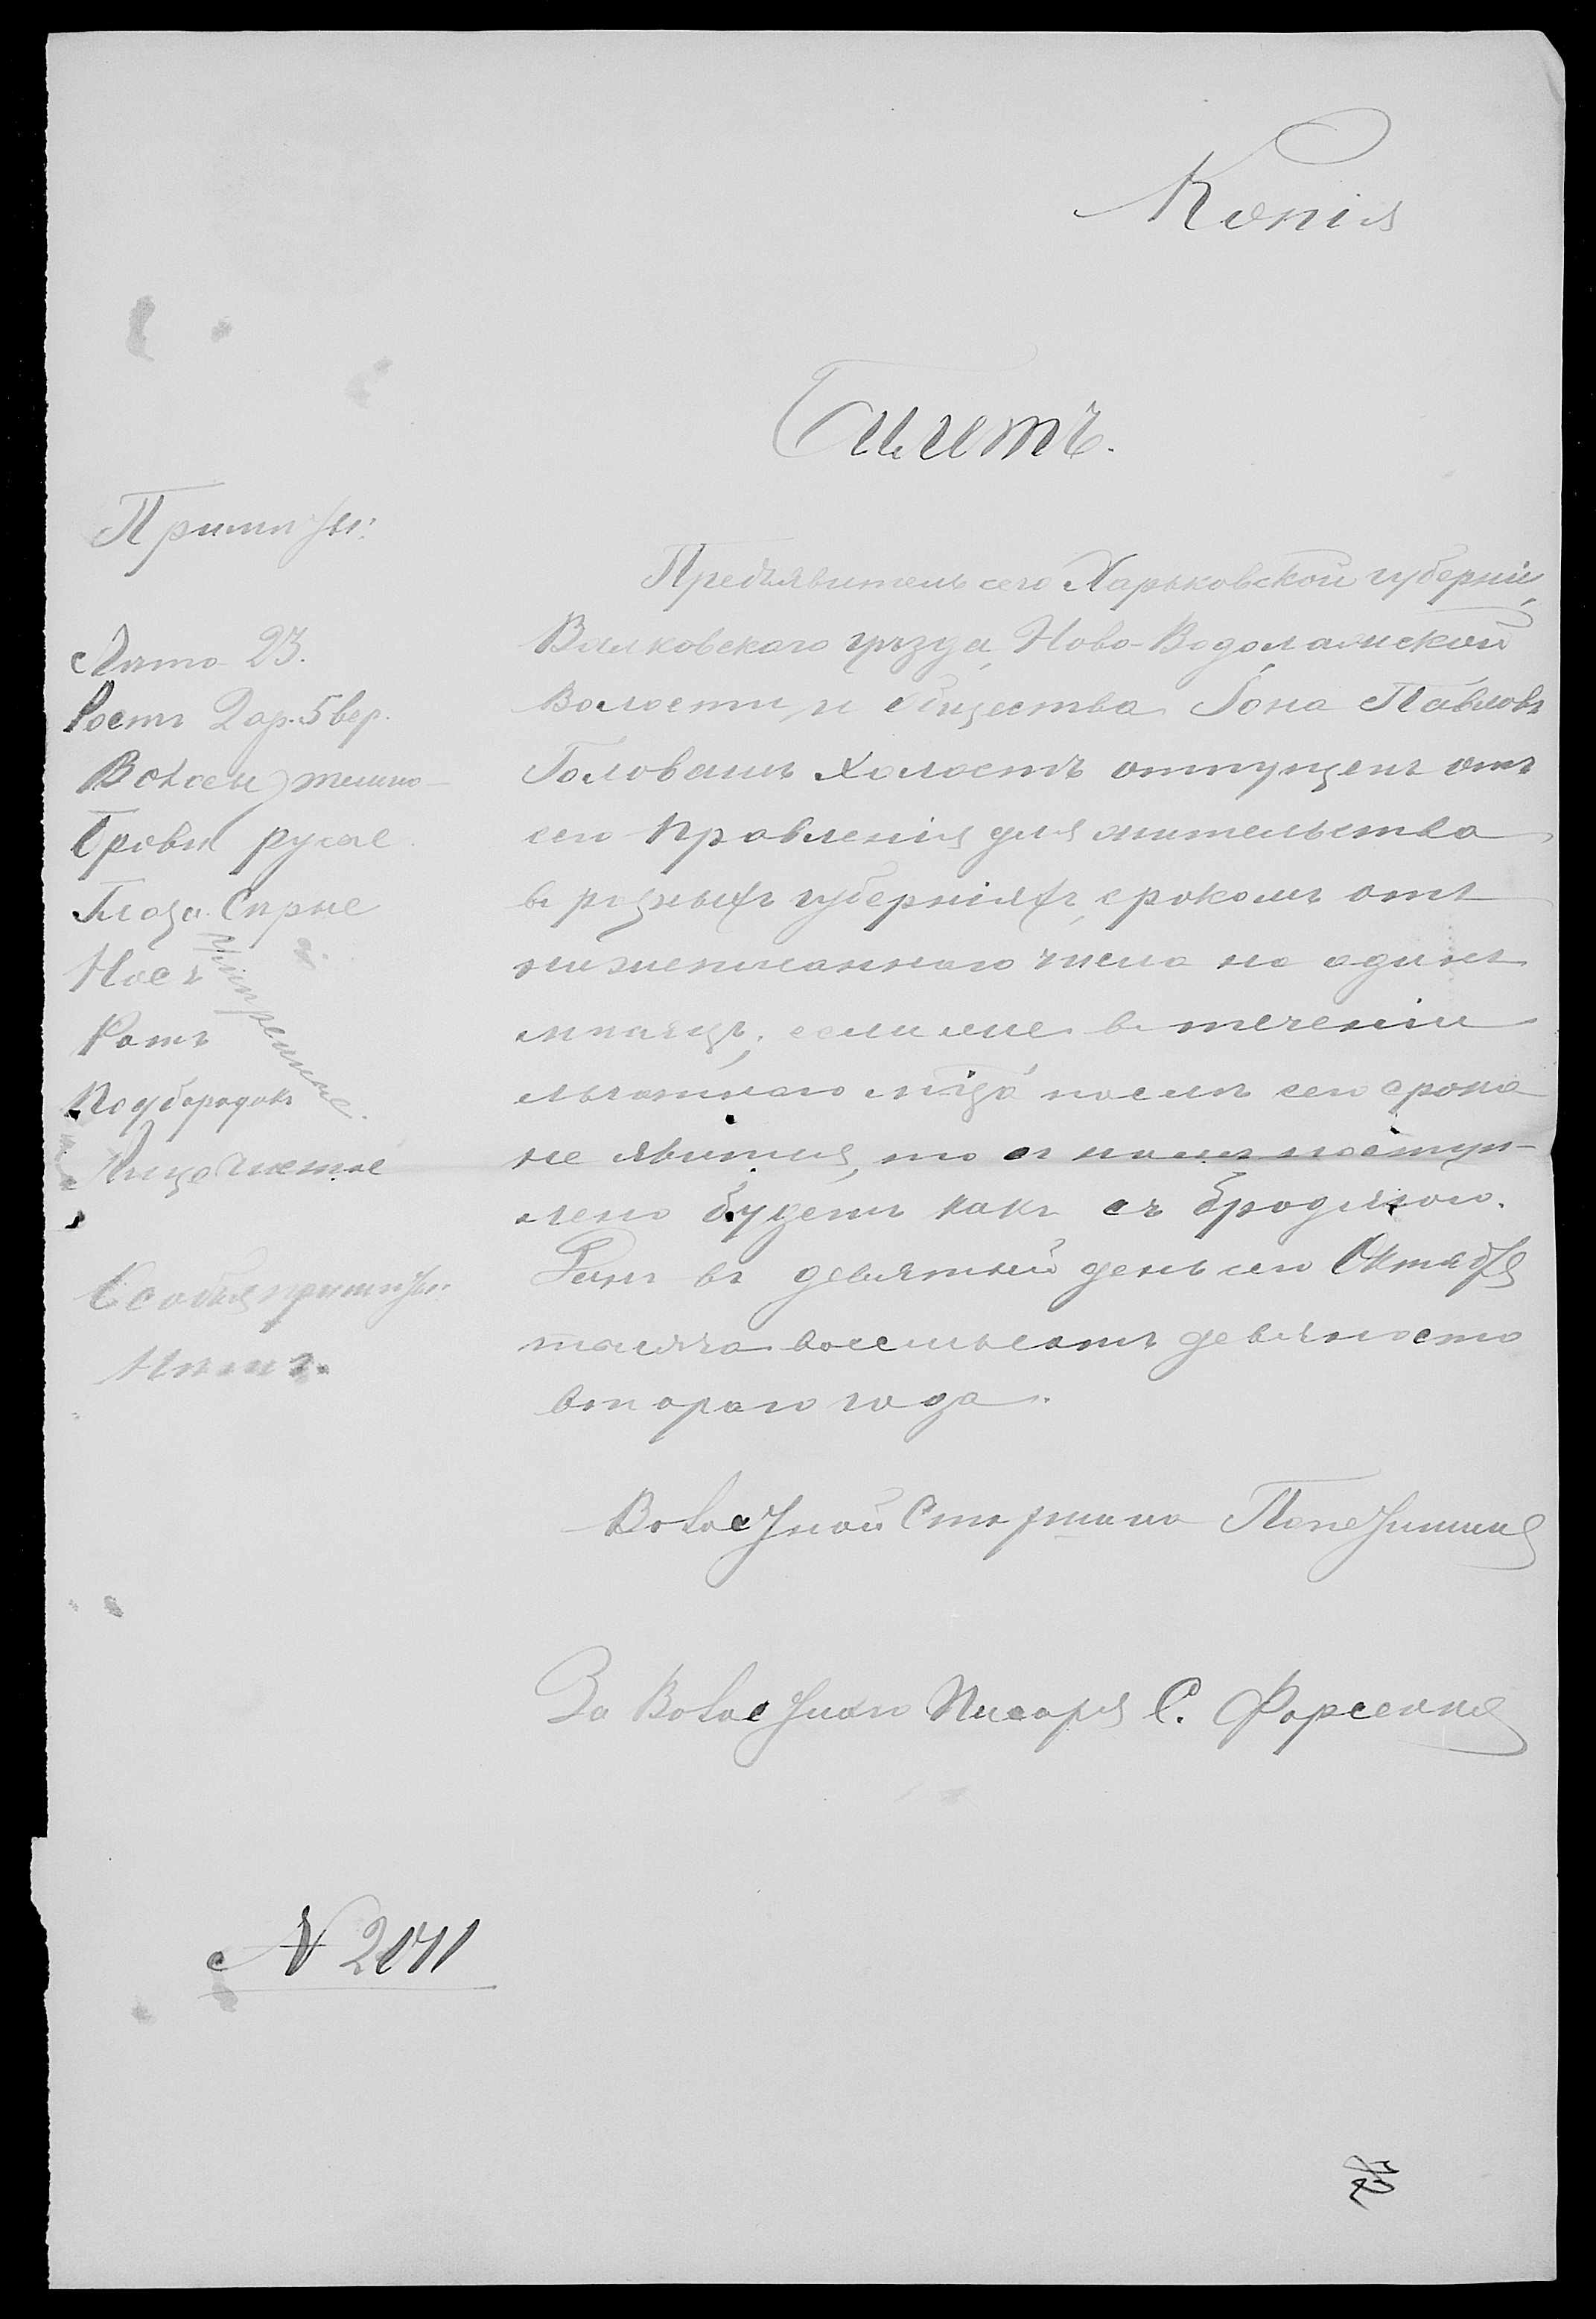 Копія
Билетъ.
Примѣты:
Лѣта 23.
Ростъ 2 ар. 5 вер.
Волосы, темно-
Брови русые
Глаза Сѣрые
Носъ
Ротъ
Подбородокъ
умѣренные.
Лицо чистое
Особыя примѣты
Нѣтъ.
Предъявитель сего Харьковской губерніи,
Валковскаго уѣзда, Ново-Водолажской
Волости и общества Іона Павловъ
Головашъ Холостъ отпущенъ отъ
сего Правленія для жительства
въ разныхъ губерніяхъ, срокомъ отъ
нижеписаннаго числа на одинъ
мѣсяцъ, если же въ теченіи
льготнаго м-ца послѣ сего срока
не явится, то съ нимъ поступ-
лено будетъ какъ съ бродягою.
Данъ въ девятый день сего Октября
тысяча восемьсотъ девяносто
втораго года.
Волостной Старшина
За Волостнаго Писаря С.
№ 2071